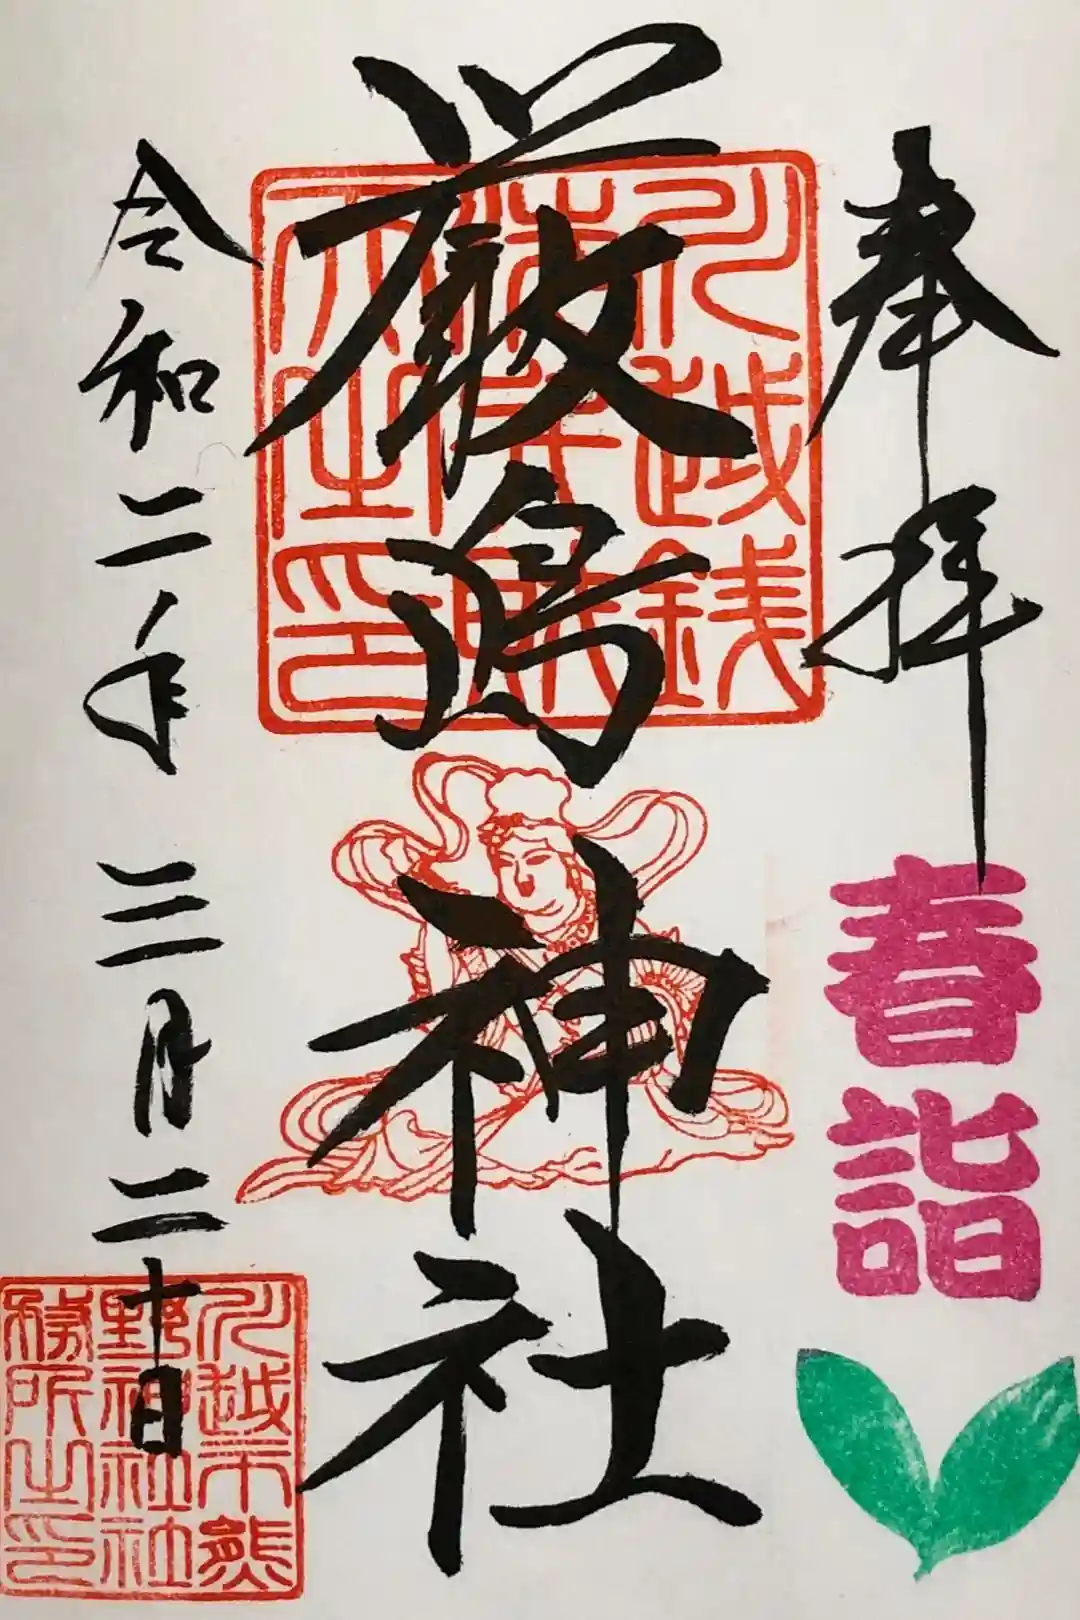 奉拝
春詣
厳島神社
令和二年三月二十日
川越市熊
野神社社
務所之印